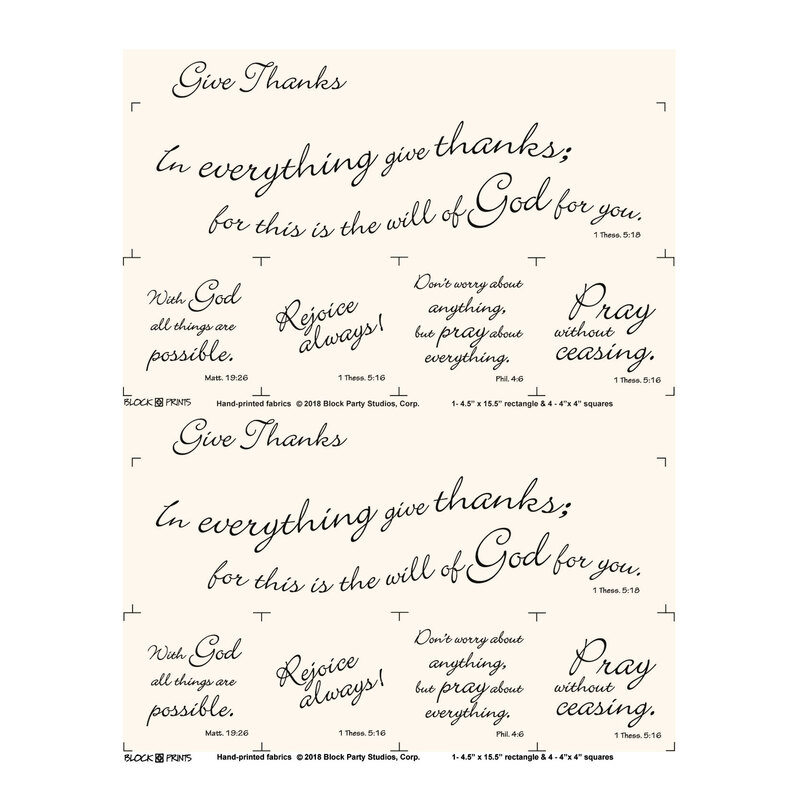 Give Thanks
In everything give thanks;
for this is the will of God for you.
1 Thess. 5:18
With God
all things are
possible.
Matt. 19:26
Rejoice
always!
1 Thess. 5:16
Don't worry about
anything,
but pray about
everything.
Phil. 4:6
Pray
without
ceasing.
1 Thess. 5:16
BLOCK PRINTS Hand-printed fabrics © 2018 Block Party Studios, Corp. 1- 4.5" x 15.5" rectangle & 4 - 4"x 4" squares
Give Thanks
In everything give thanks;
for this is the will of God for you.
1 Thess. 5:18
With God
all things are
possible.
Matt. 19:26
Rejoice
always!
1 Thess. 5:16
Don't worry about
anything,
but pray about
everything.
Phil. 4:6
Pray
without
ceasing.
1 Thess. 5:16
BLOCK PRINTS Hand-printed fabrics © 2018 Block Party Studios, Corp. 1- 4.5" x 15.5" rectangle & 4 - 4"x 4" squares